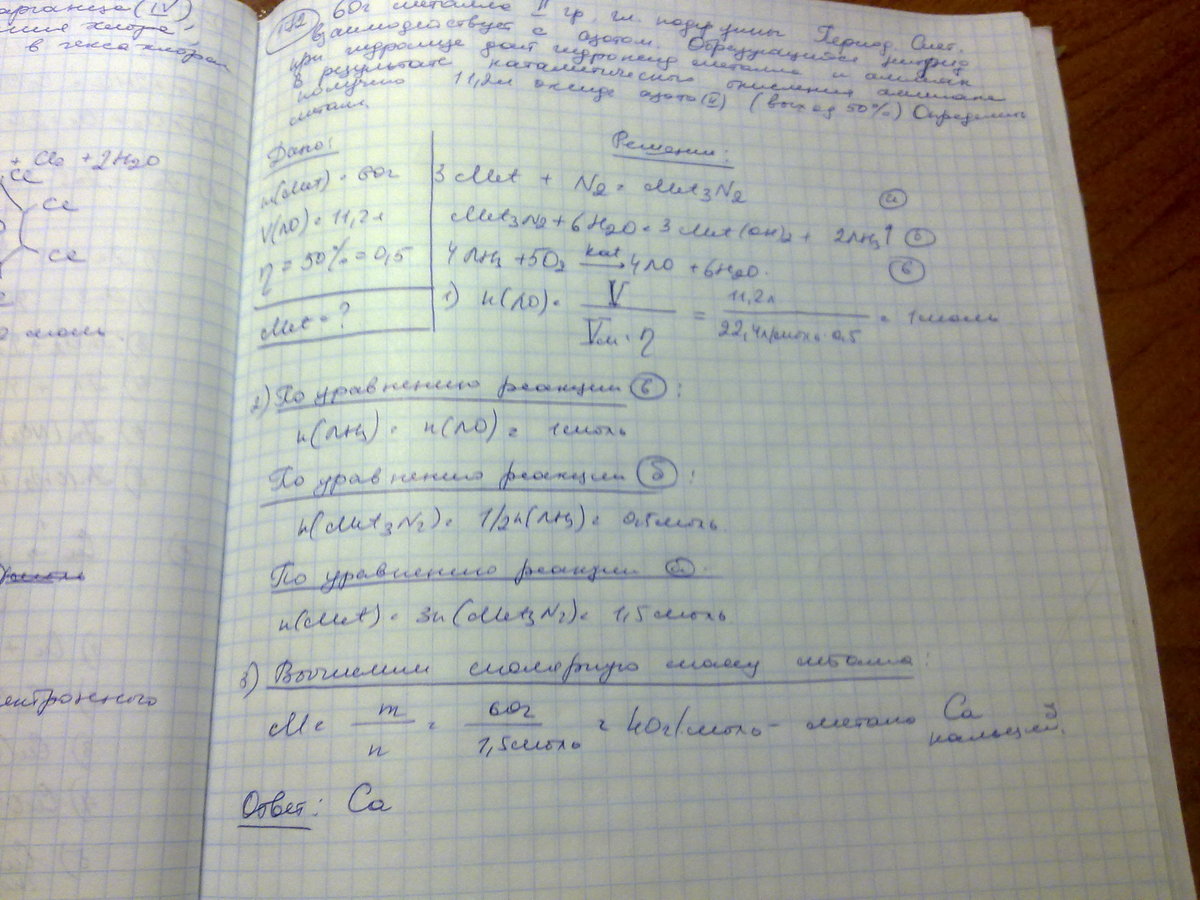 арганца (IV)
в гексахлоран
+ Cl₂ + 2H₂O
Cl
Cl
Cl
моль
ектронного
60г металла II гр. гл. подгруппы Период. Сист.
взаимодействует с азотом. Образующийся нитрид
при гидролизе дает гидроксид металла и аммиак
в результате каталитического окисления аммиака
получено 11,2л оксида азота (II) (выход 50%) Определить
металл.
Дано:
m(Met) = 60г
V(NO) = 11,2л
η = 50% = 0,5
Met = ?
Решение:
3Met + N₂ = Met₃N₂ (а)
Met₃N₂ + 6H₂O = 3Met(OH)₂ + 2NH₃↑ (б)
4NH₃ + 5O₂ kat→ 4NO + 6H₂O. (в)
1) n(NO) = V / Vм · η = 11,2л / 22,4л/моль · 0,5 = 1моль
2) По уравнению реакции (в):
n(NH₃) = n(NO) = 1моль
По уравнению реакции (б):
n(Met₃N₂) = 1/2n(NH₃) = 0,5моль.
По уравнению реакции (а).
n(Met) = 3n(Met₃N₂) = 1,5моль
3) Вычислим молярную массу металла:
M = m / n = 60г / 1,5моль = 40г/моль - металл Ca
кальций.
Ответ: Ca